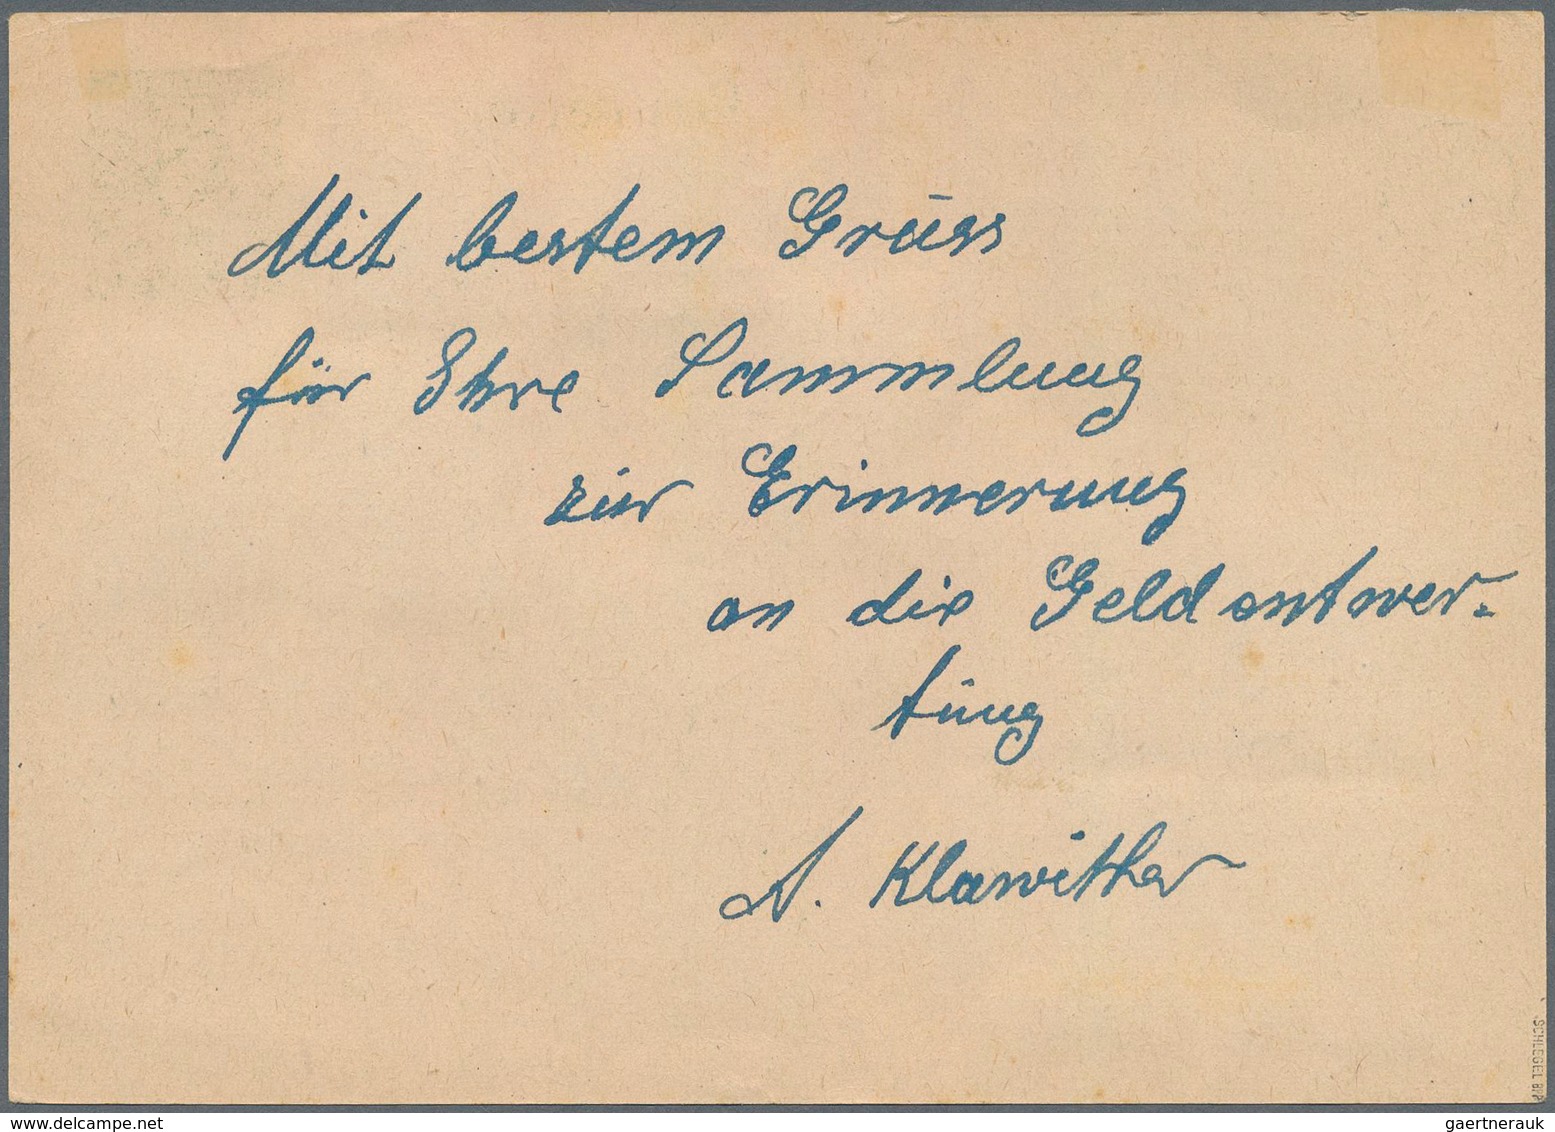 Mit bestem Gruss
für Ihre Sammlung
zur Erinnerung
an die Geldentwer-
tung
A. Klawitter
SCHLEGEL BPP
gaertnerauk@delcampe.net